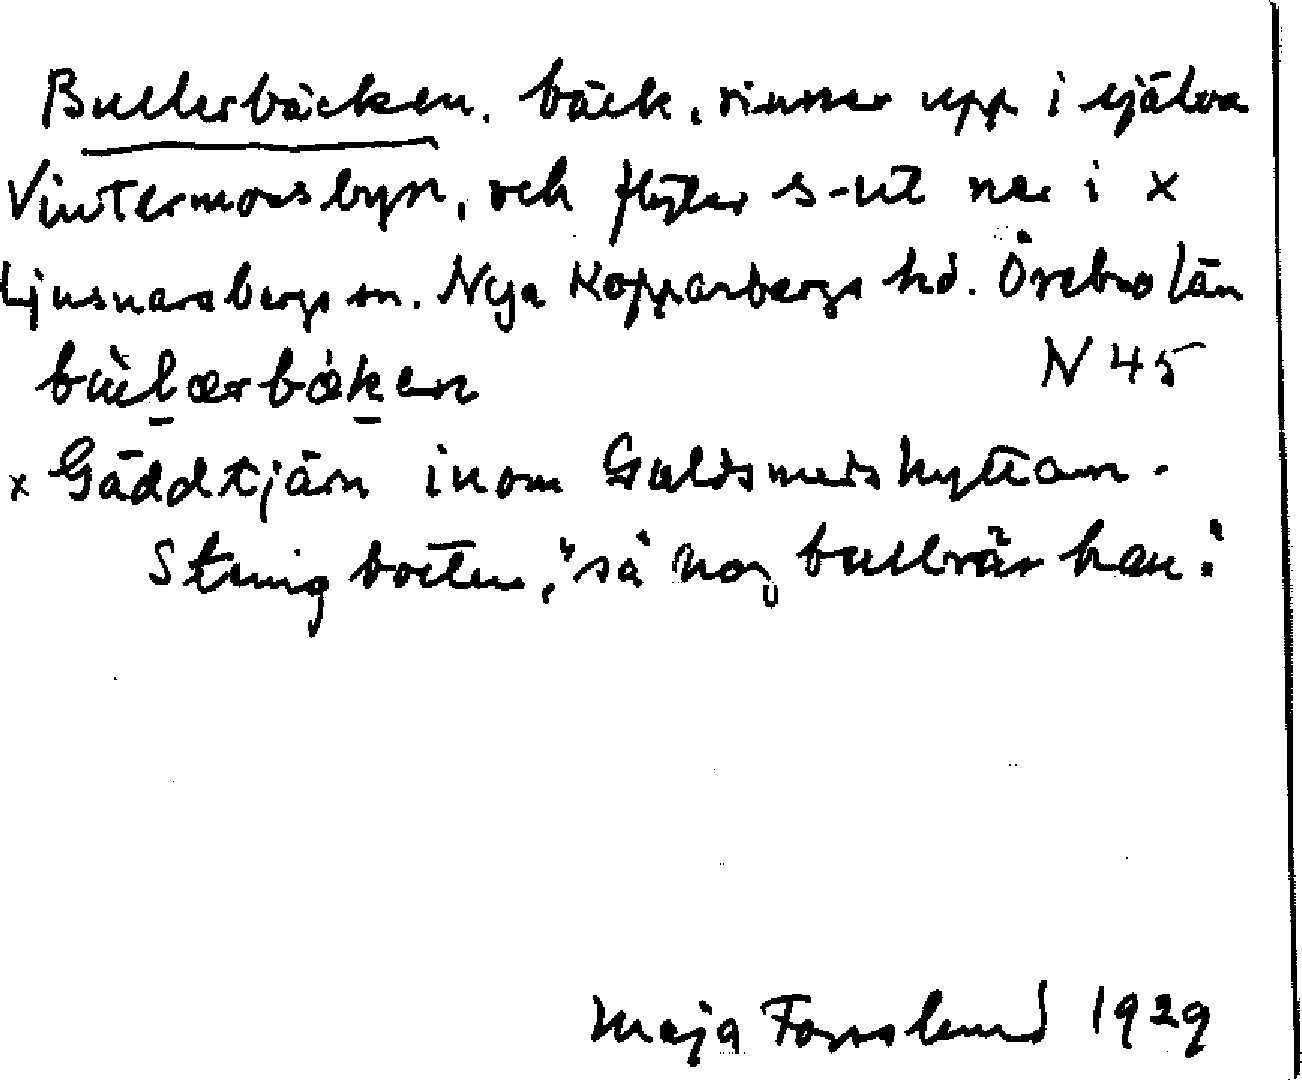 Bullerbäcken. bäck, rinner upp i själva
Vintermorsbyn, och flyter s-ut ner i x
Ljusnarsbergs sn. Nya Kopparbergs hd. Örebro län
bùlærbæken N 45
x Gäddtjärn inom Guldsmedshyttan.
Strung botten, "så nog bullrär han."
Maja Forsslund 1929